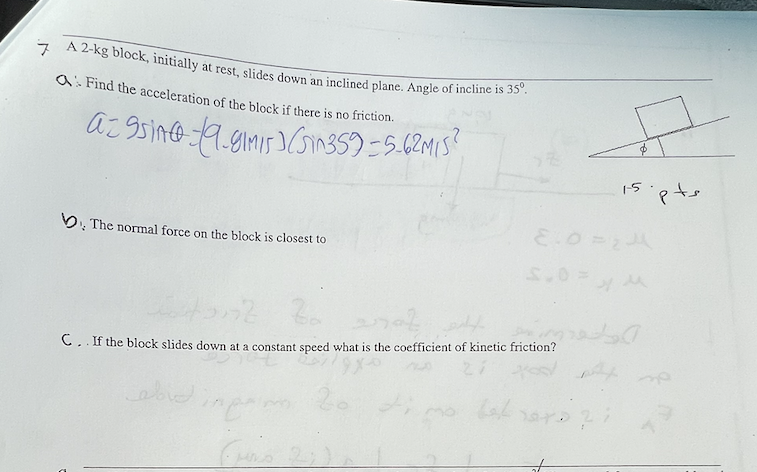 7 A 2-kg block, initially at rest, slides down an inclined plane. Angle of incline is 35⁰.
a. Find the acceleration of the block if there is no friction.
a= gsinθ=(9.81M/s)(sin35°)=5.62M/s²
ϕ
1.5 pts
b. The normal force on the block is closest to
C. . If the block slides down at a constant speed what is the coefficient of kinetic friction?